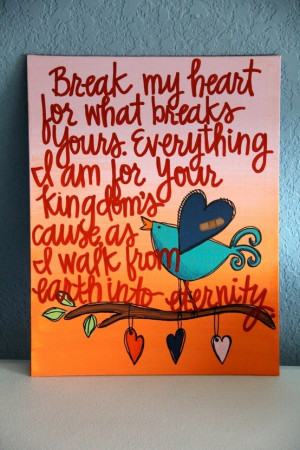 Break my heart
for what breaks
Yours. Everything
I am for Your
kingdom's
cause as
I walk from
earth into eternity.